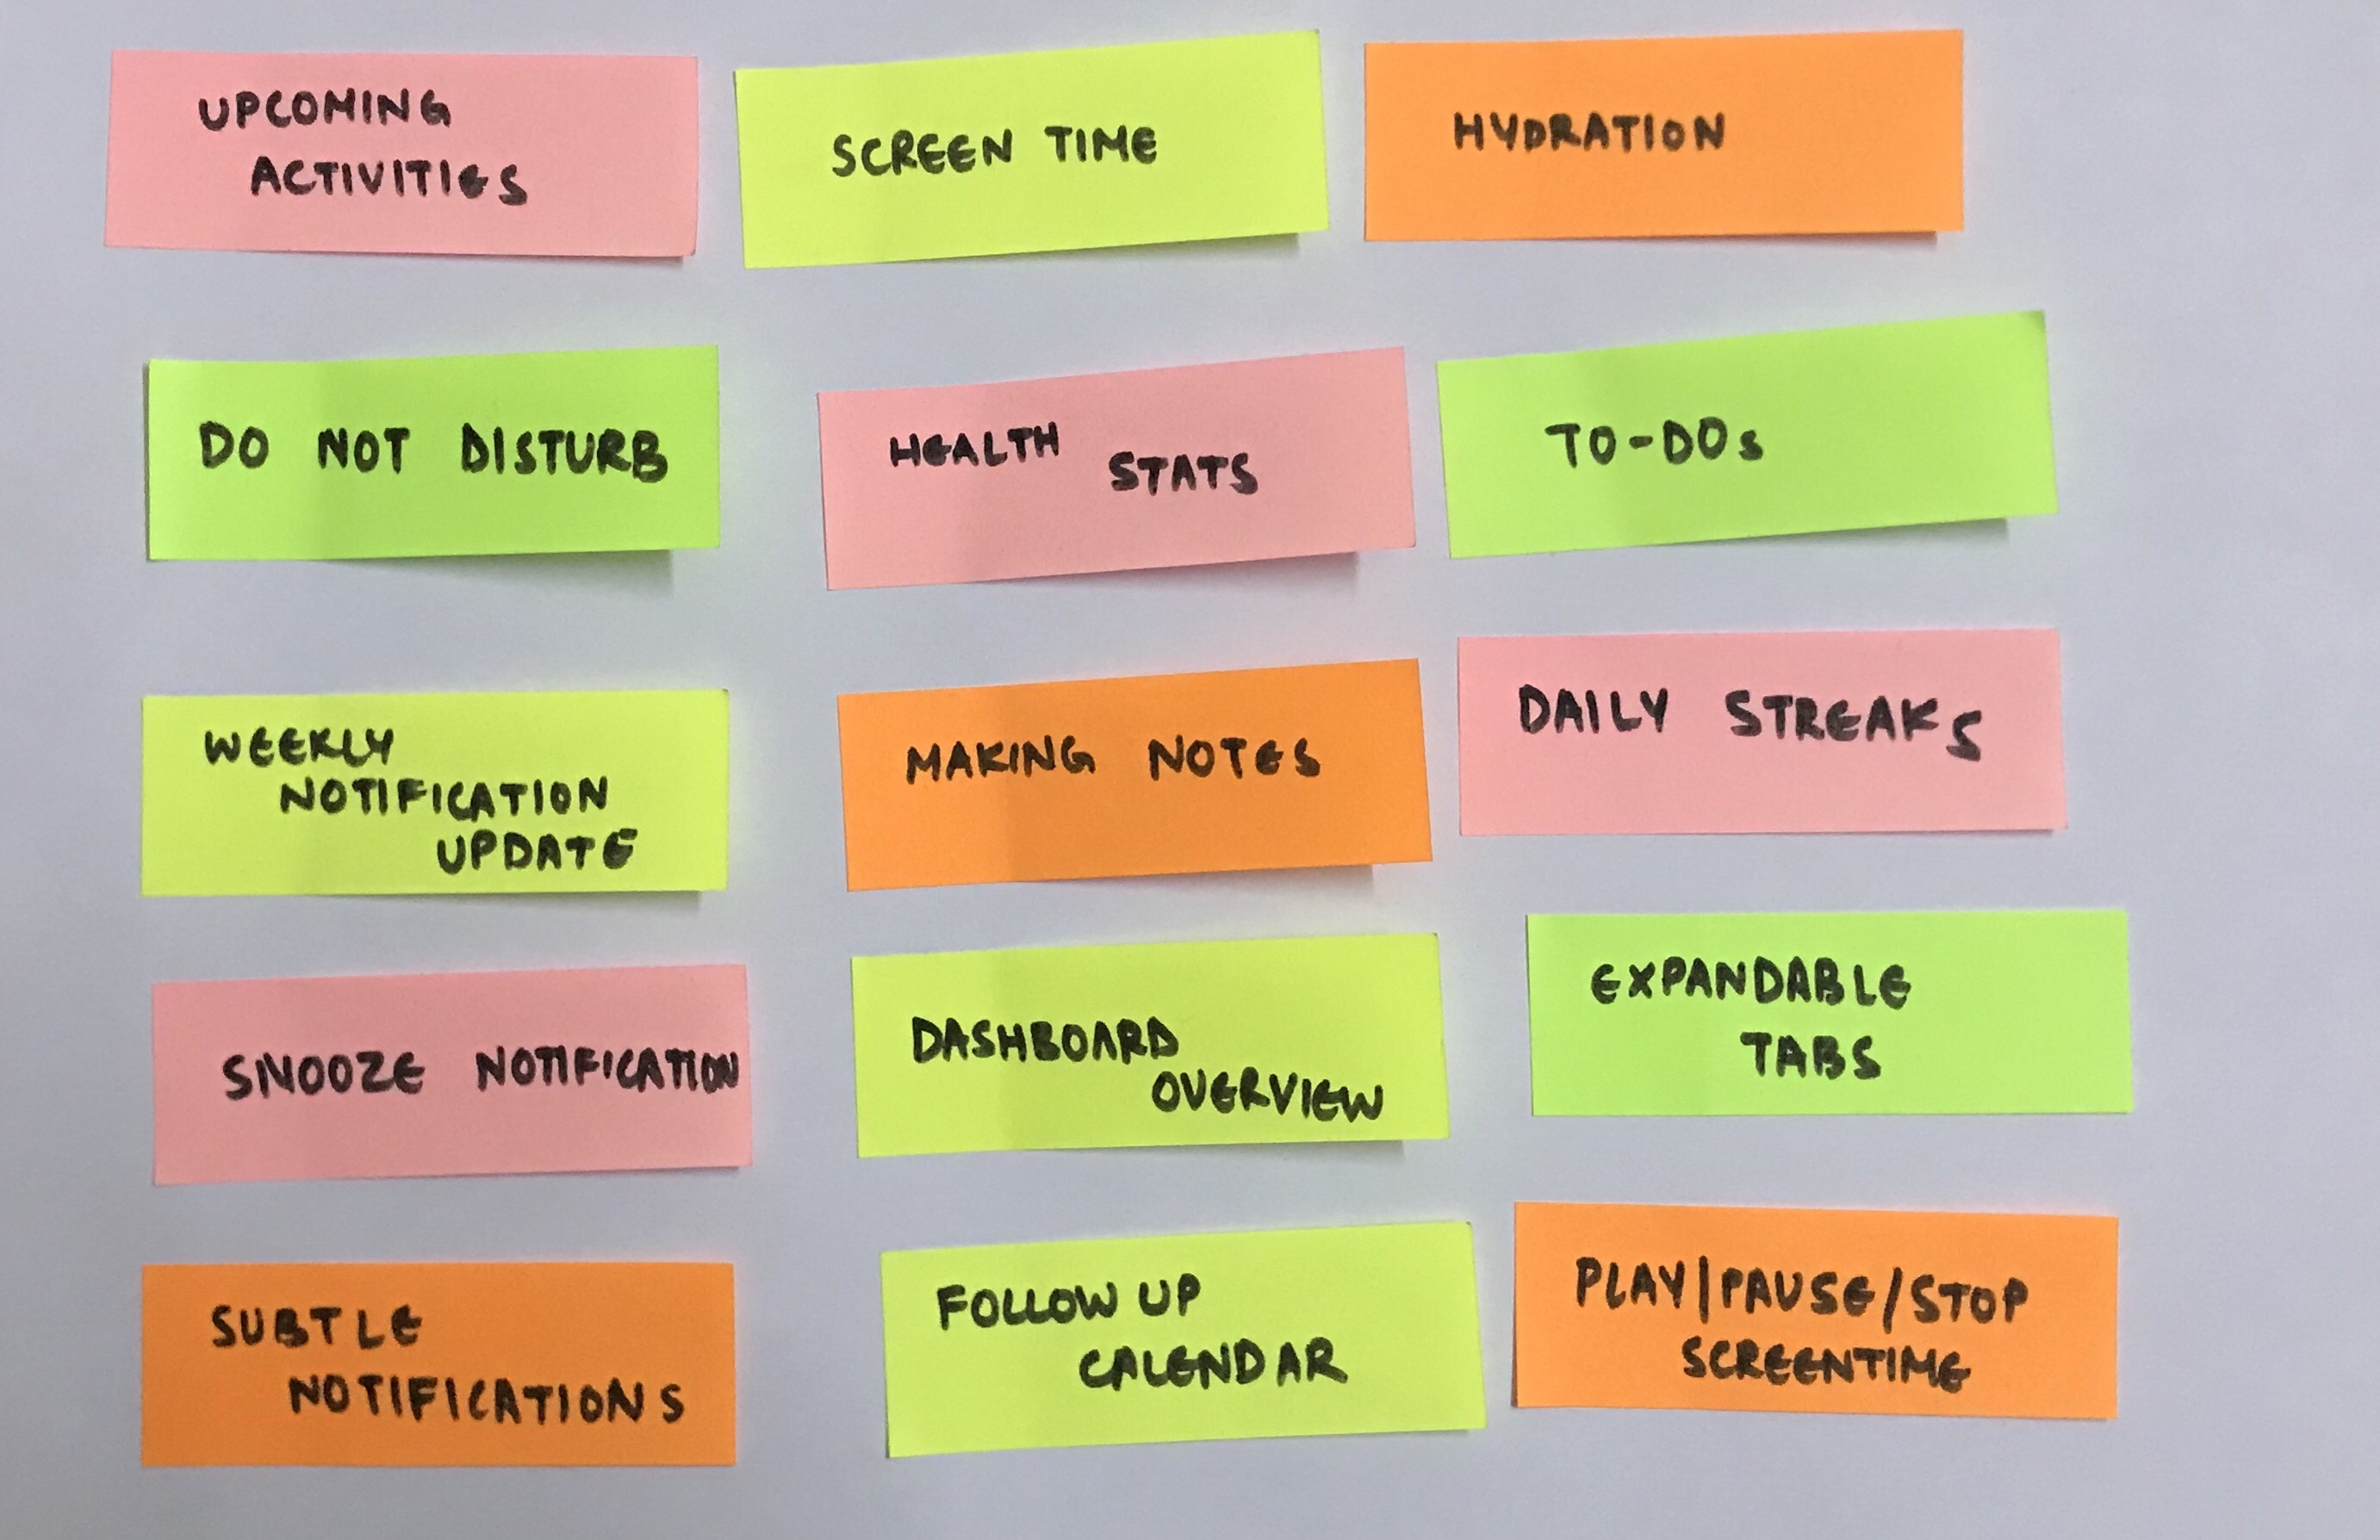 UPCOMING
ACTIVITIES
SCREEN TIME
HYDRATION
DO NOT DISTURB
HEALTH
STATS
TO-DOs
WEEKLY
NOTIFICATION
UPDATE
MAKING NOTES
DAILY STREAKS
SNOOZE NOTIFICATION
DASHBOARD
OVERVIEW
EXPANDABLE
TABS
SUBTLE
NOTIFICATIONS
FOLLOW UP
CALENDAR
PLAY|PAUSE/STOP
SCREENTIME